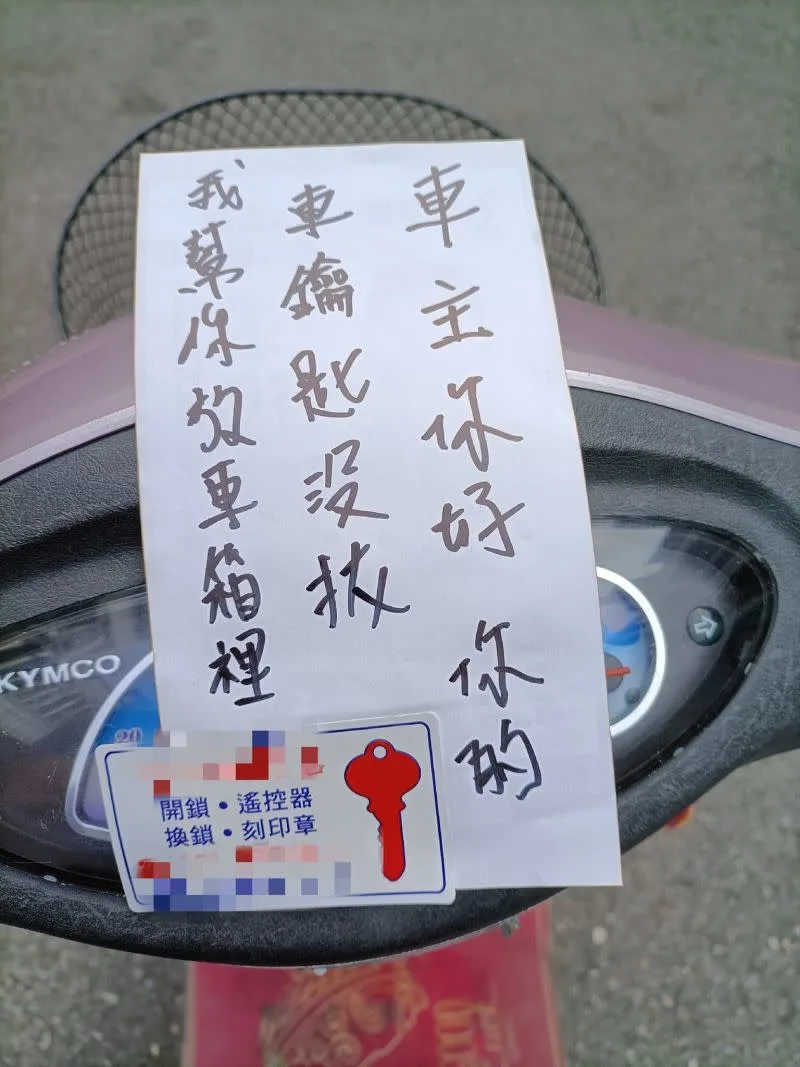 車主你好 你的
車鑰匙沒拔
我幫你放車箱裡
開鎖・遙控器
換鎖・刻印章
KYMCO
20